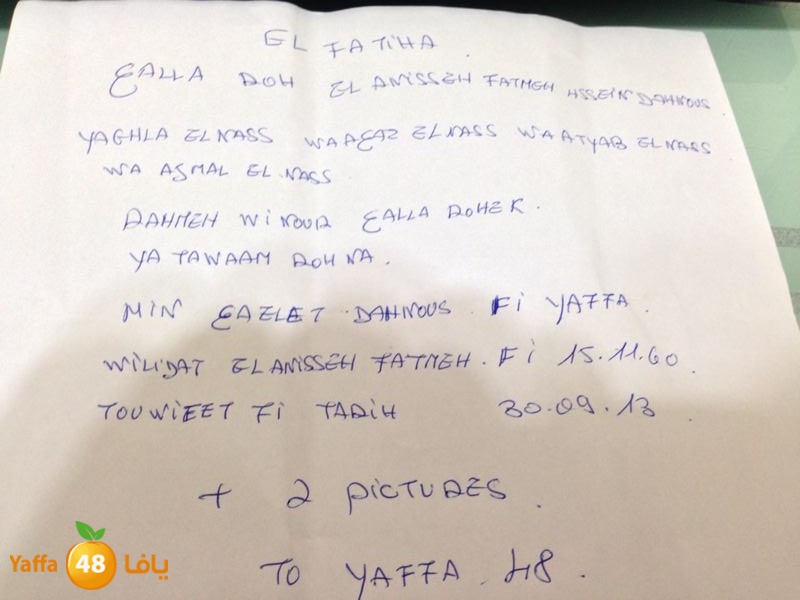 EL FATIHA
EALLA ROH EL ANISSEH FATMEH HSSEIN DAHNOUS
YAGHLA ELNASS WAAEAZ ELNASS WAATYAB ELNASS
WA AJMAL EL NASS
RAHMEH WINOUR EALLA ROHEK.
YA TAWAAM ROHNA.
MIN EAELET DAHNOUS FI YAFFA.
WILIDAT ELANISSEH FATMEH. FI 15.11.60.
TOUWIEET FI TARIH 30.09.13.
+ 2 PICTURES.
TO YAFFA 48.
Yaffa 48 يافا